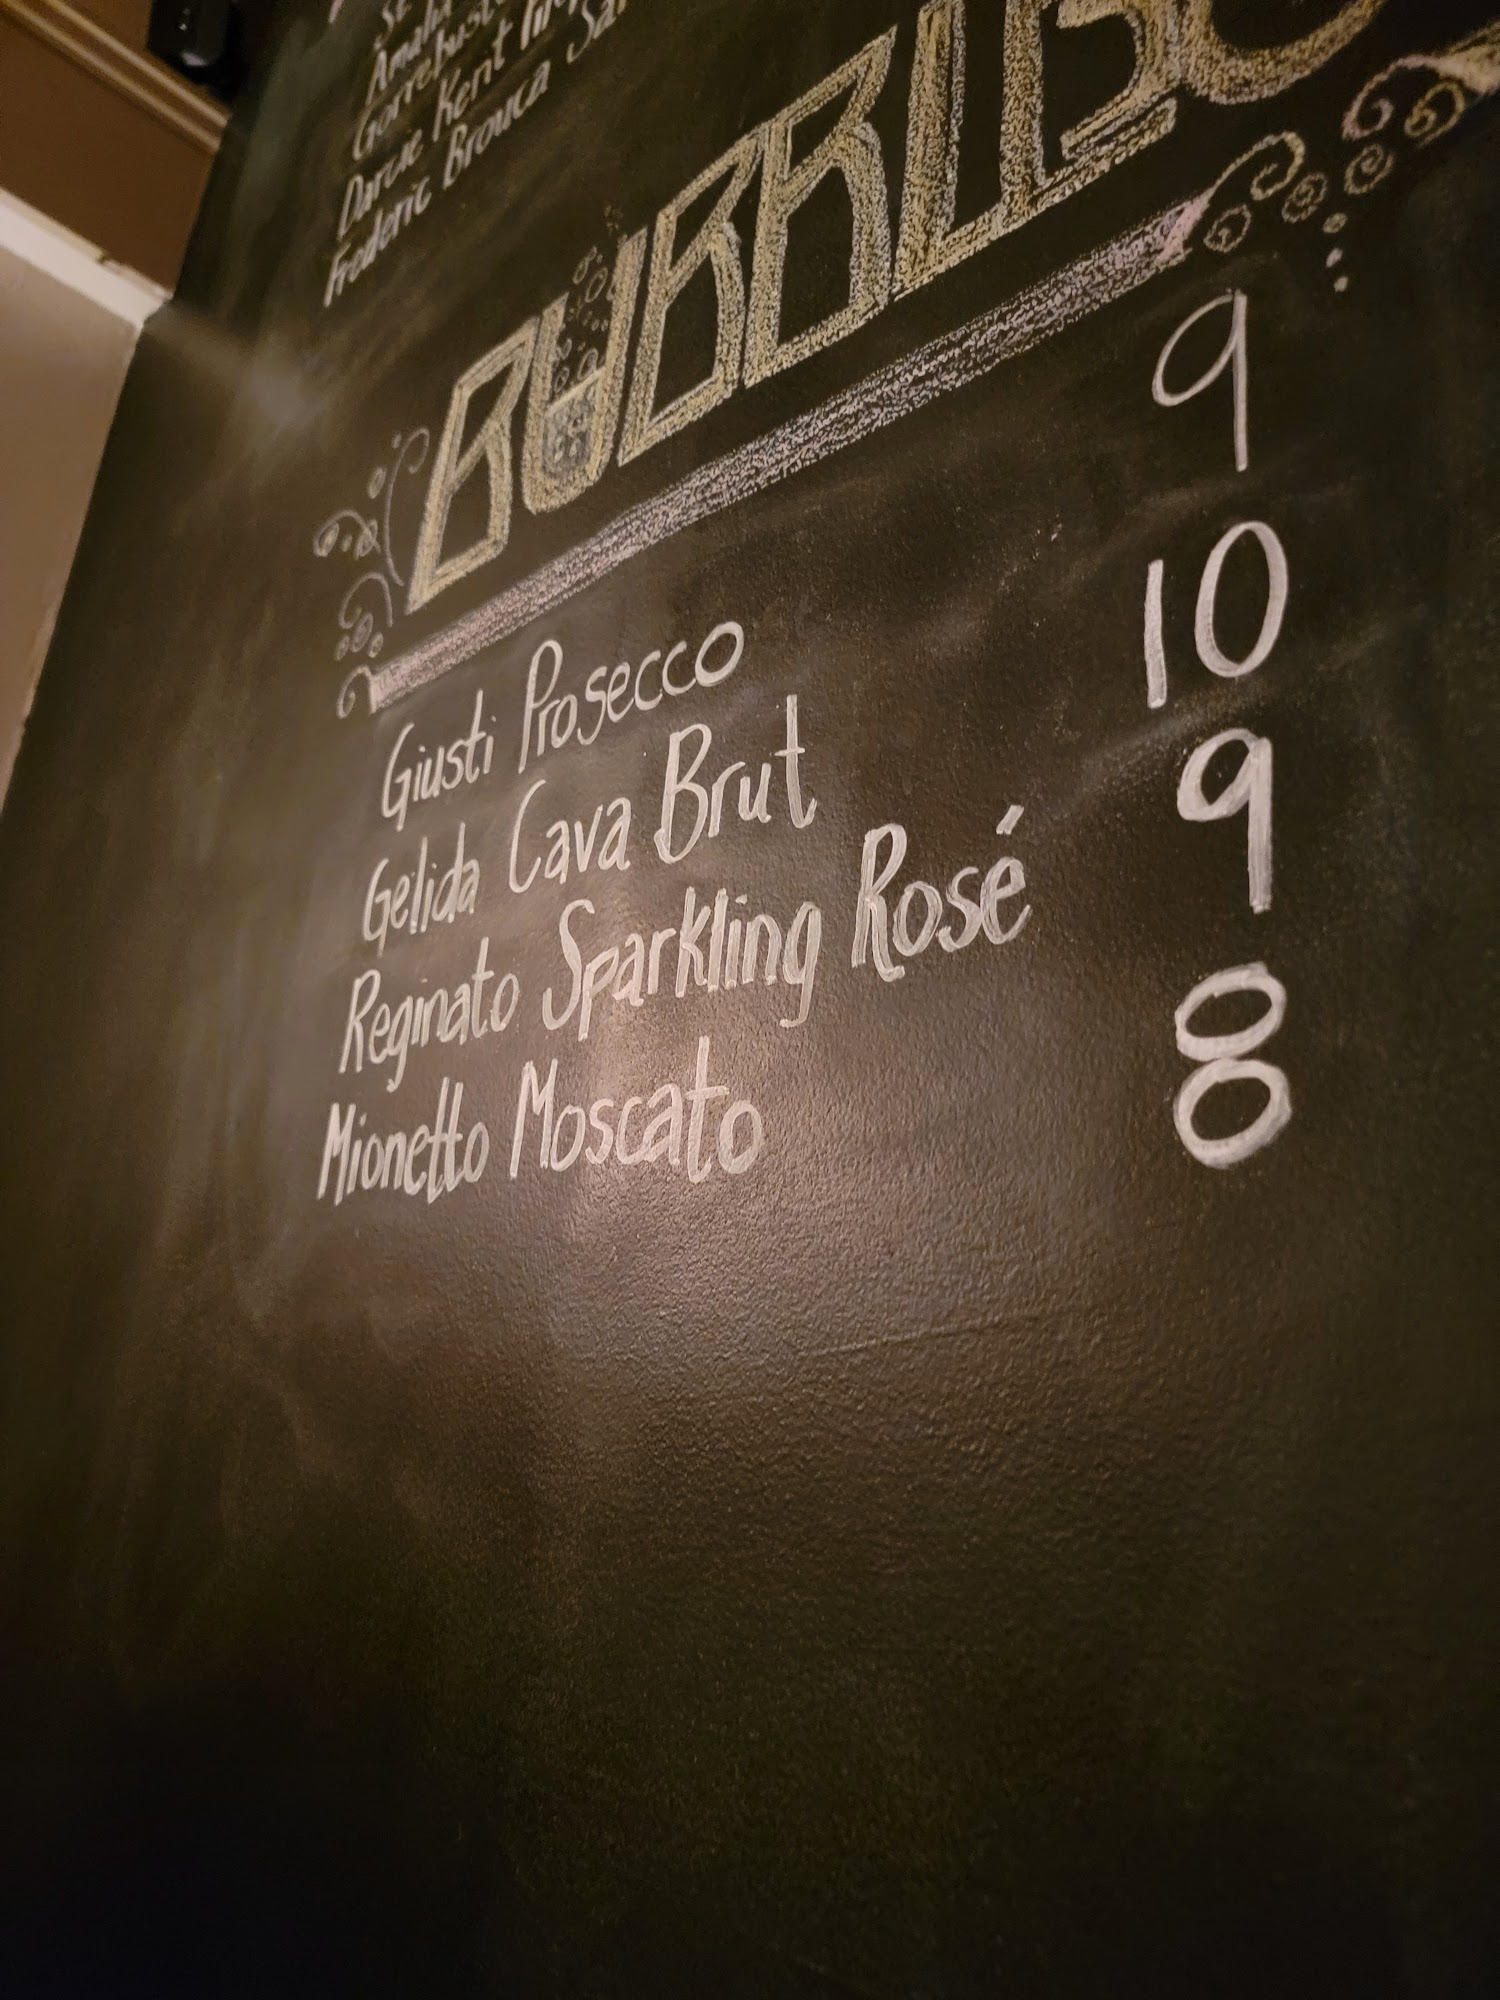 Amalia
Darcie Kent
Frederic Brouca
BUBBLES
Giusti Prosecco 9
Gelida Cava Brut 10
Reginato Sparkling Rosé 9
Mionetto Moscato 8